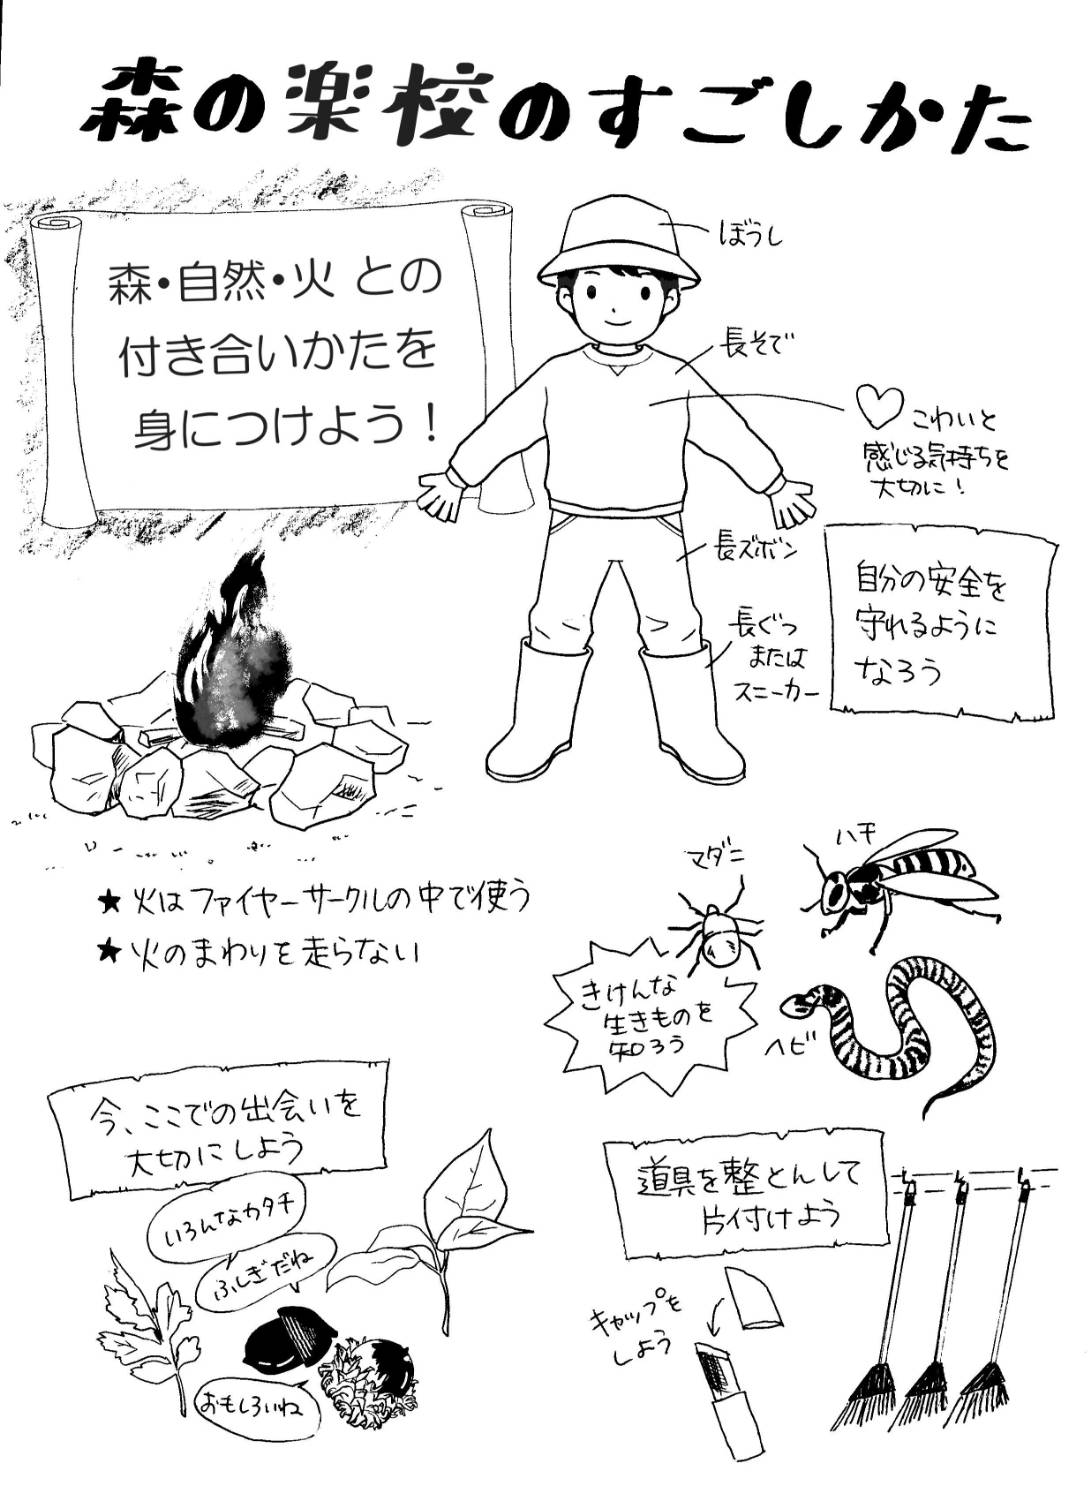 森の楽校のすごしかた
森・自然・火 との
付き合いかたを
身につけよう！
ぼうし
長そで
♡こわいと
感じる気持ちを
大切に！
長ズボン
長ぐつ
または
スニーカー
自分の安全を
守れるように
なろう
★火はファイヤーサークルの中で使う
★火のまわりを走らない
マダニ
ハチ
ヘビ
きけんな
生きものを
知ろう
今、ここでの出会いを
大切にしよう
いろんなカタチ
ふしぎだね
おもしろいね
道具を整とんして
片付けよう
キャップを
しよう